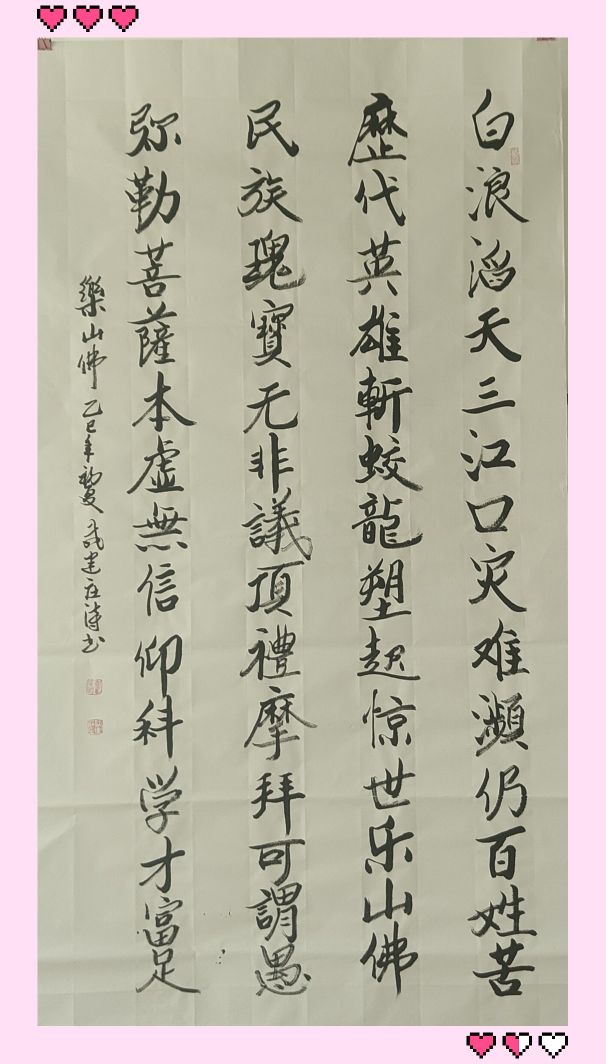 白浪滔天三江口灾难濒仍百姓苦
歷代英雄斬蛟龍塑起惊世乐山佛
民族瑰寶无非議頂禮摩拜可謂愚
弥勒菩薩本虛無信仰科学才富足
樂山佛 乙巳年初夏 武建庄诗书